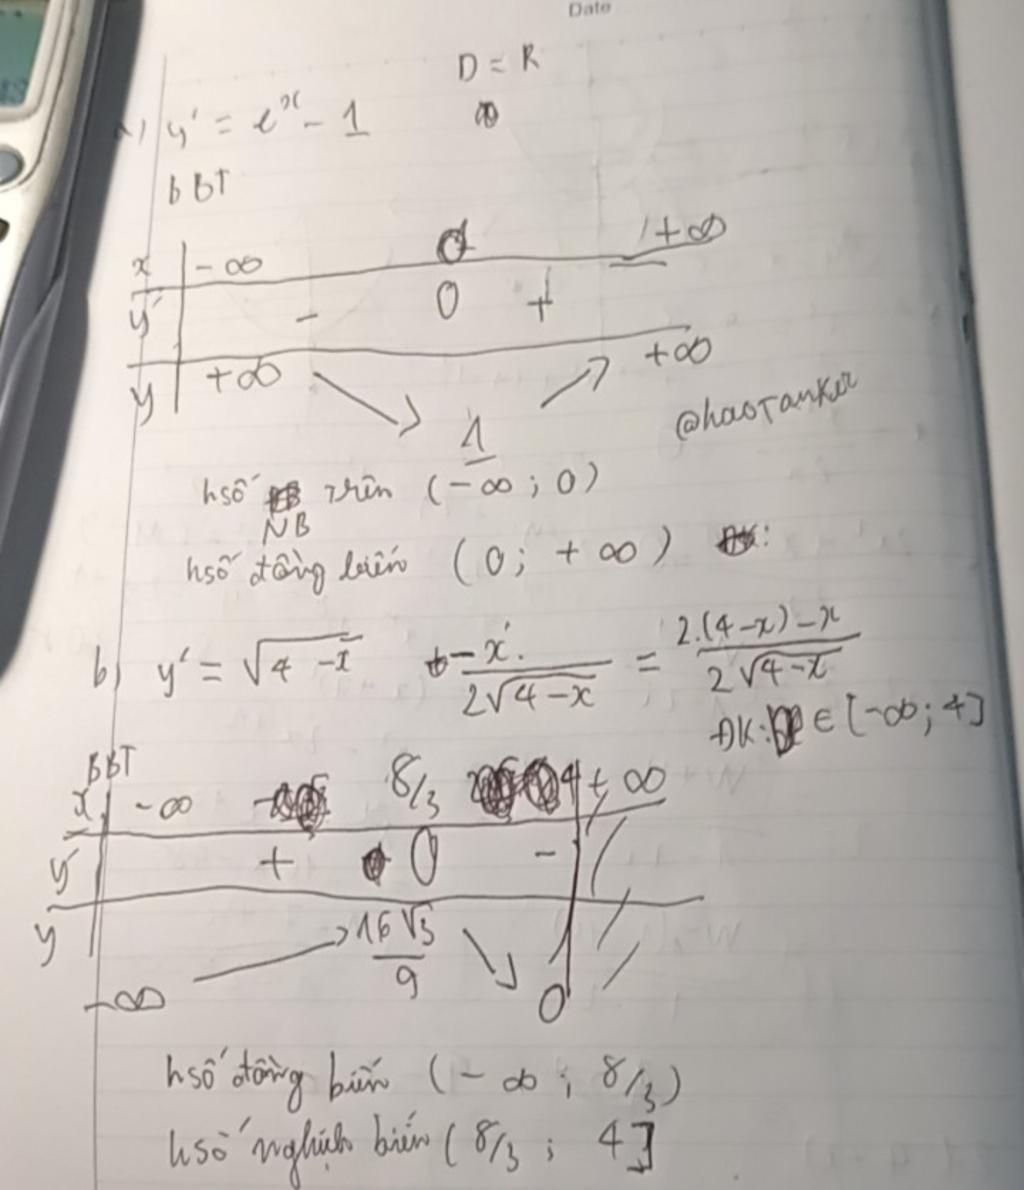 Date
D = R
a) y' = e^x - 1
BBT
x -∞ 0 +∞
y' - 0 + 
y +∞ 1 +∞
@haotanker
hsố NB trên (-∞; 0)
hsố đồng biến (0; +∞) ĐK:
b) y' = √(4 - x) + (-x)/(2√(4-x)) = (2.(4-x)-x)/(2√(4-x))
ĐK: D ∈ [-∞; 4]
BBT
x -∞ 8/3 4 +∞
y' + 0 -
y -∞ 16√3/9 0
hsố đồng biến (-∞; 8/3)
hsố nghịch biến (8/3; 4]